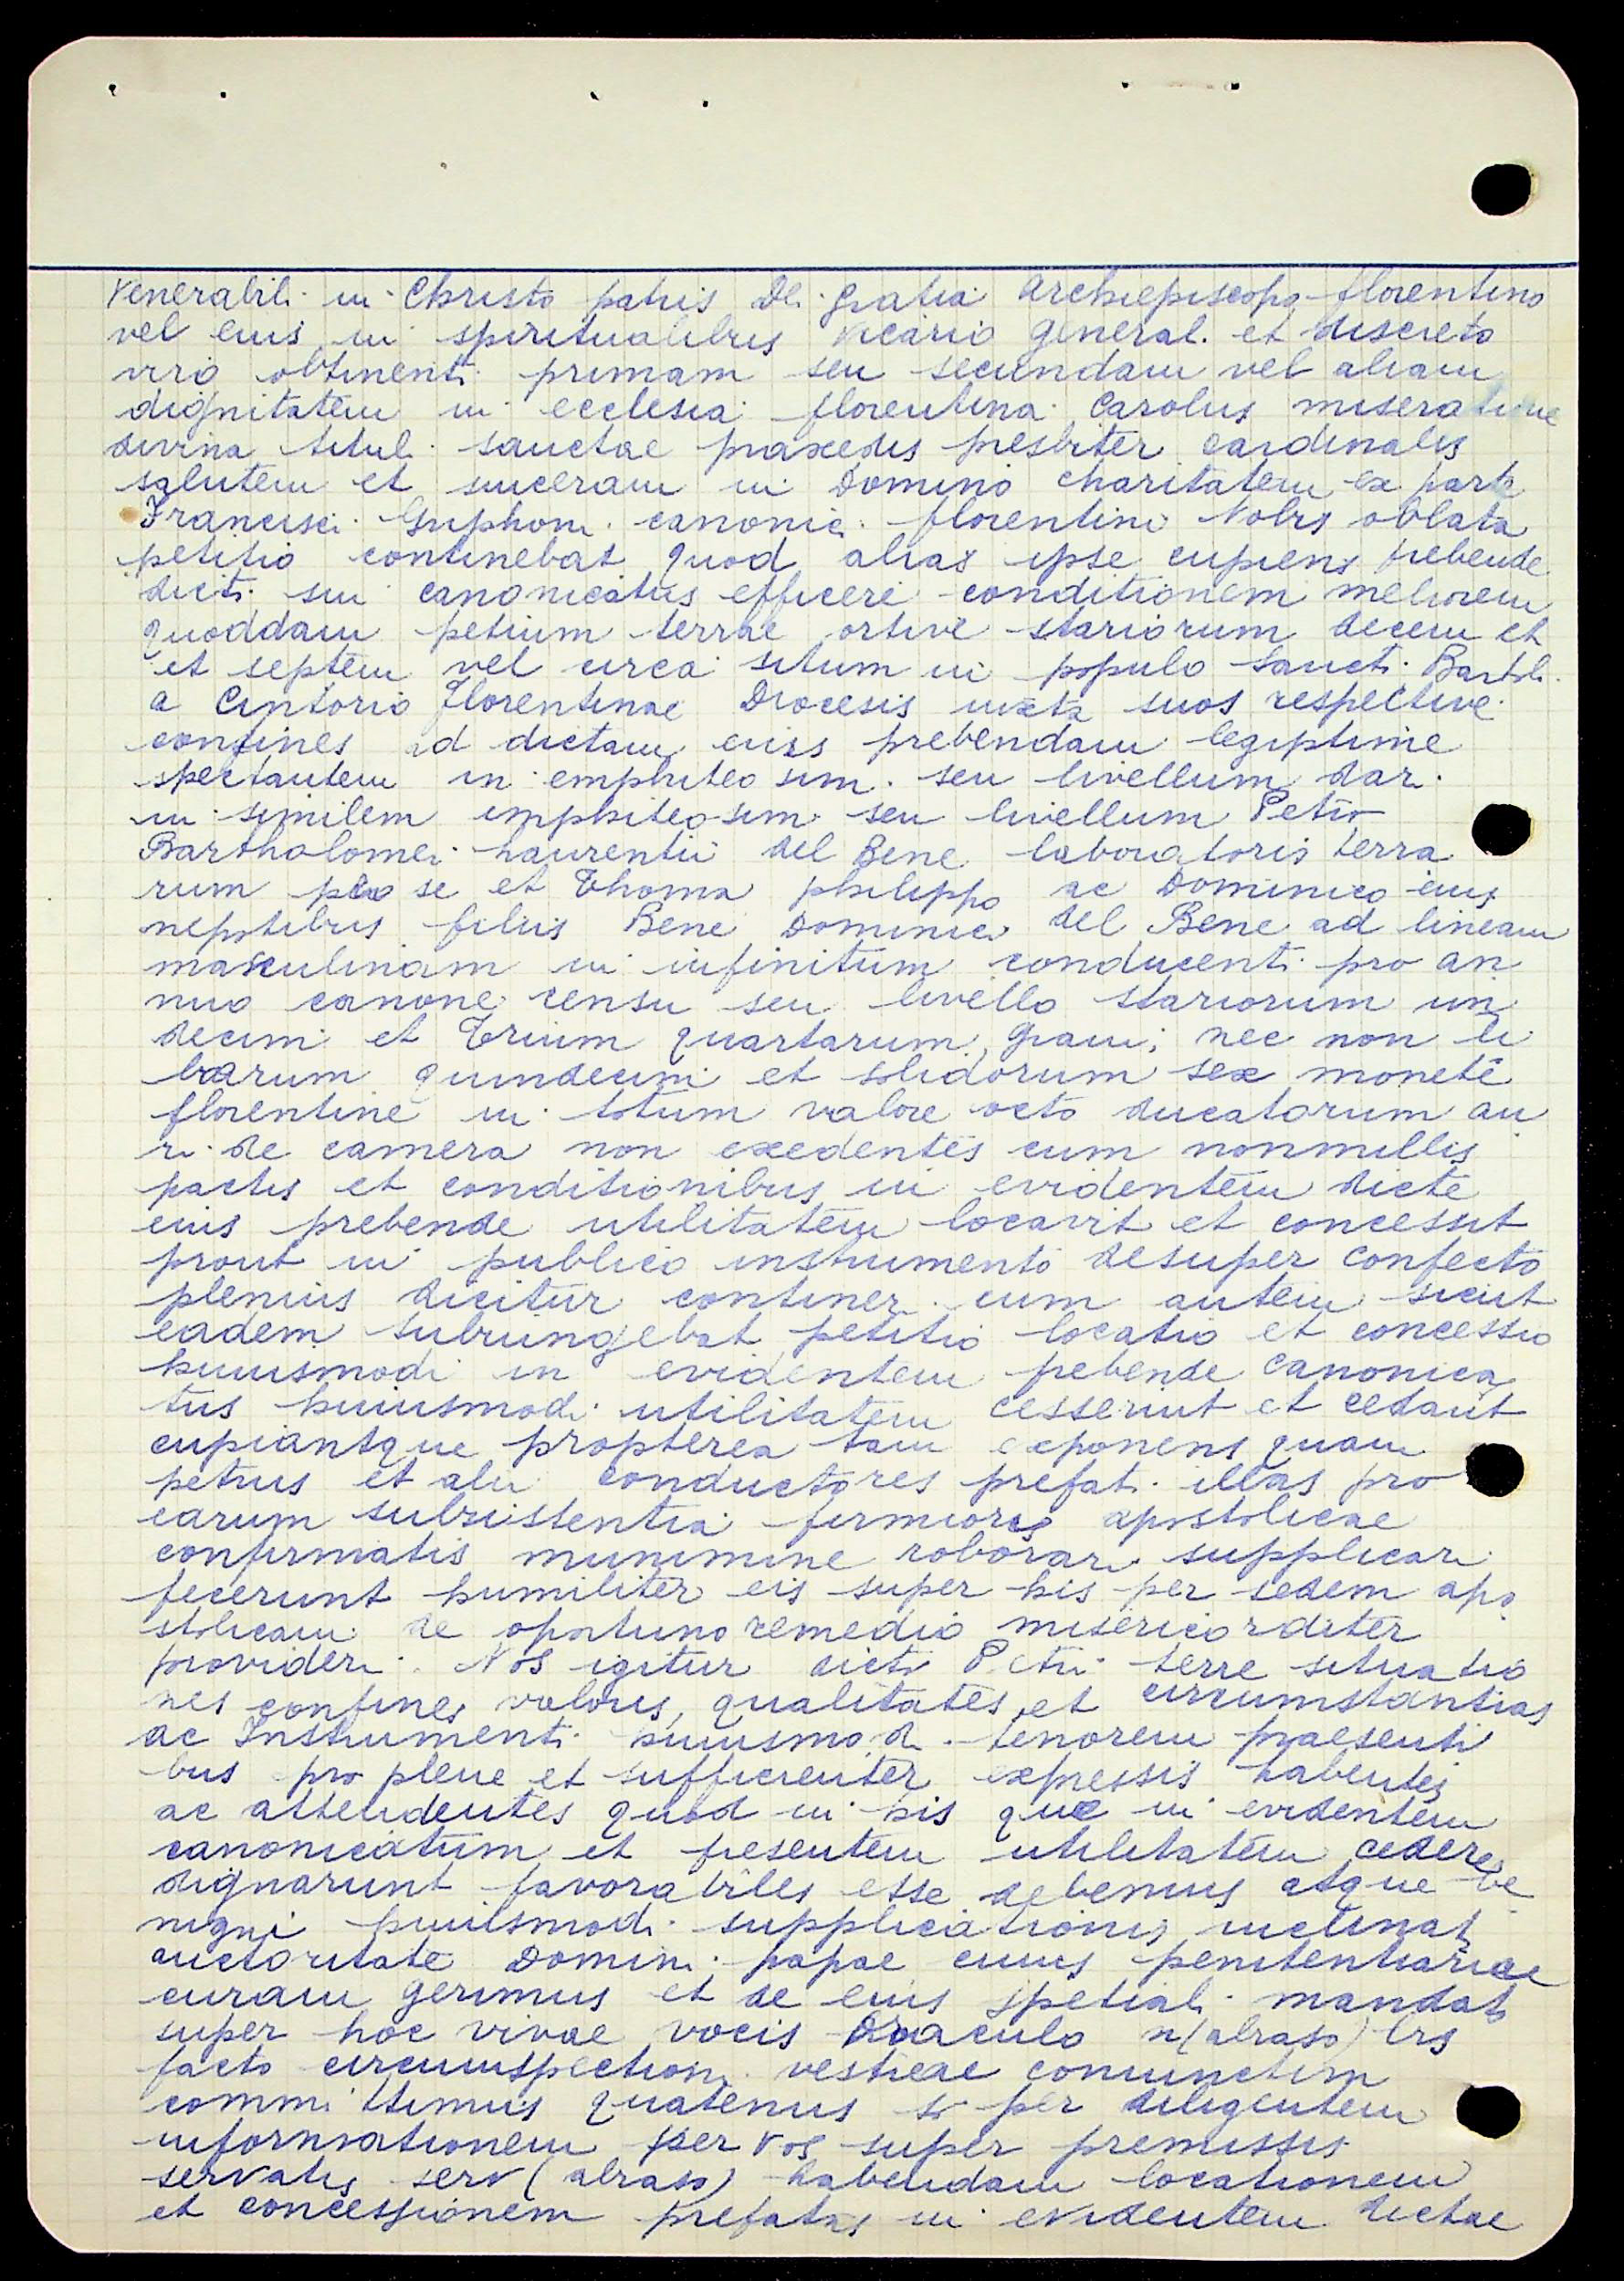 Venerabili in Christo patris Dei gratia Archiepiscopo florentino
vel eius in spiritualibus Vicario general. et discreto
viro obtinenti primam seu secundam vel aliam
dignitatem in ecclesia florentina Carolus miseratione
divina tituli sanctae praxedis presbiter cardinalis
salutem et sinceram in Domino charitatem ex parte
Francisci Griphoni canonici florentini Nobis oblata
petitio continebat quod alias ipse cupiens prebende
dicti sui canonicatus efficere conditionem meliorem
quoddam petium terrae ortive stariorum decem et
et septem vel circa situm in populo Sancti Bartoli
a Cintorio Florentinae Diocesis iuxta suos respective
confines ad dictam eius prebendam legiptime
spectantem in emphiteosim seu livellum dari
in similem emphiteosim seu livellum Petro
Bartholomei Laurentii del Bene laboratoris terra
rum pro se et Thoma philippo ac Dominico eius
nepotibus filiis Bene Dominici del Bene ad lineam
masculinam in infinitum conducenti pro an
nuo canone censu seu livello stariorum un
decim et trium quartarum grani, nec non li
brarum quindecim et solidorum sex monete
florentine in totum valore octo ducatorum au
ri de camera non exedentes cum nonnullis
pactis et conditionibus in evidentem dicte
eius prebende utilitatem locavit et concessit
prout in publico instrumento desuper confecto
plenius dicitur contineri cum autem sicut
eadem subiungebat petitio locatio et concessio
huiusmodi in evidentem prebende canonica
tus huiusmodi utilitatem cesserint et cedant
cupiantque propterea tam exponens quam
petrus et alii conductores prefati illas pro
earum subsistentia firmiores apostolicae
confirmatis munimine roborari supplicari
fecerunt humiliter eis super his per sedem apo
stolicam de oportuno remedio misericorditer
provideri. Nos igitur dicti Petii terre situatio
nes confines valores, qualitates et circumstantias
ac Instrumenti huiusmodi tenorem praesenti
bus pro plene et sufficienter expressis habentes
ac attendentes quod in his que in evidentem
canonicatum et presentem utilitatem cedere
dignarunt favorabiles esse debemus atque be
nigni huiusmodi supplicationis inclinati
auctoritate Domini papae cuius penitentiariae
curam gerimus et de eius spetiali mandato
super hoc vivae vocis oraculo n (abraso) bis
facto circumspectioni vestrae coniunctim
committimus quatenus si per diligentem
informationem per vos super premissis
servatis serv (abraso) habendam locationem
et concessionem prefatas in evidentem dictae